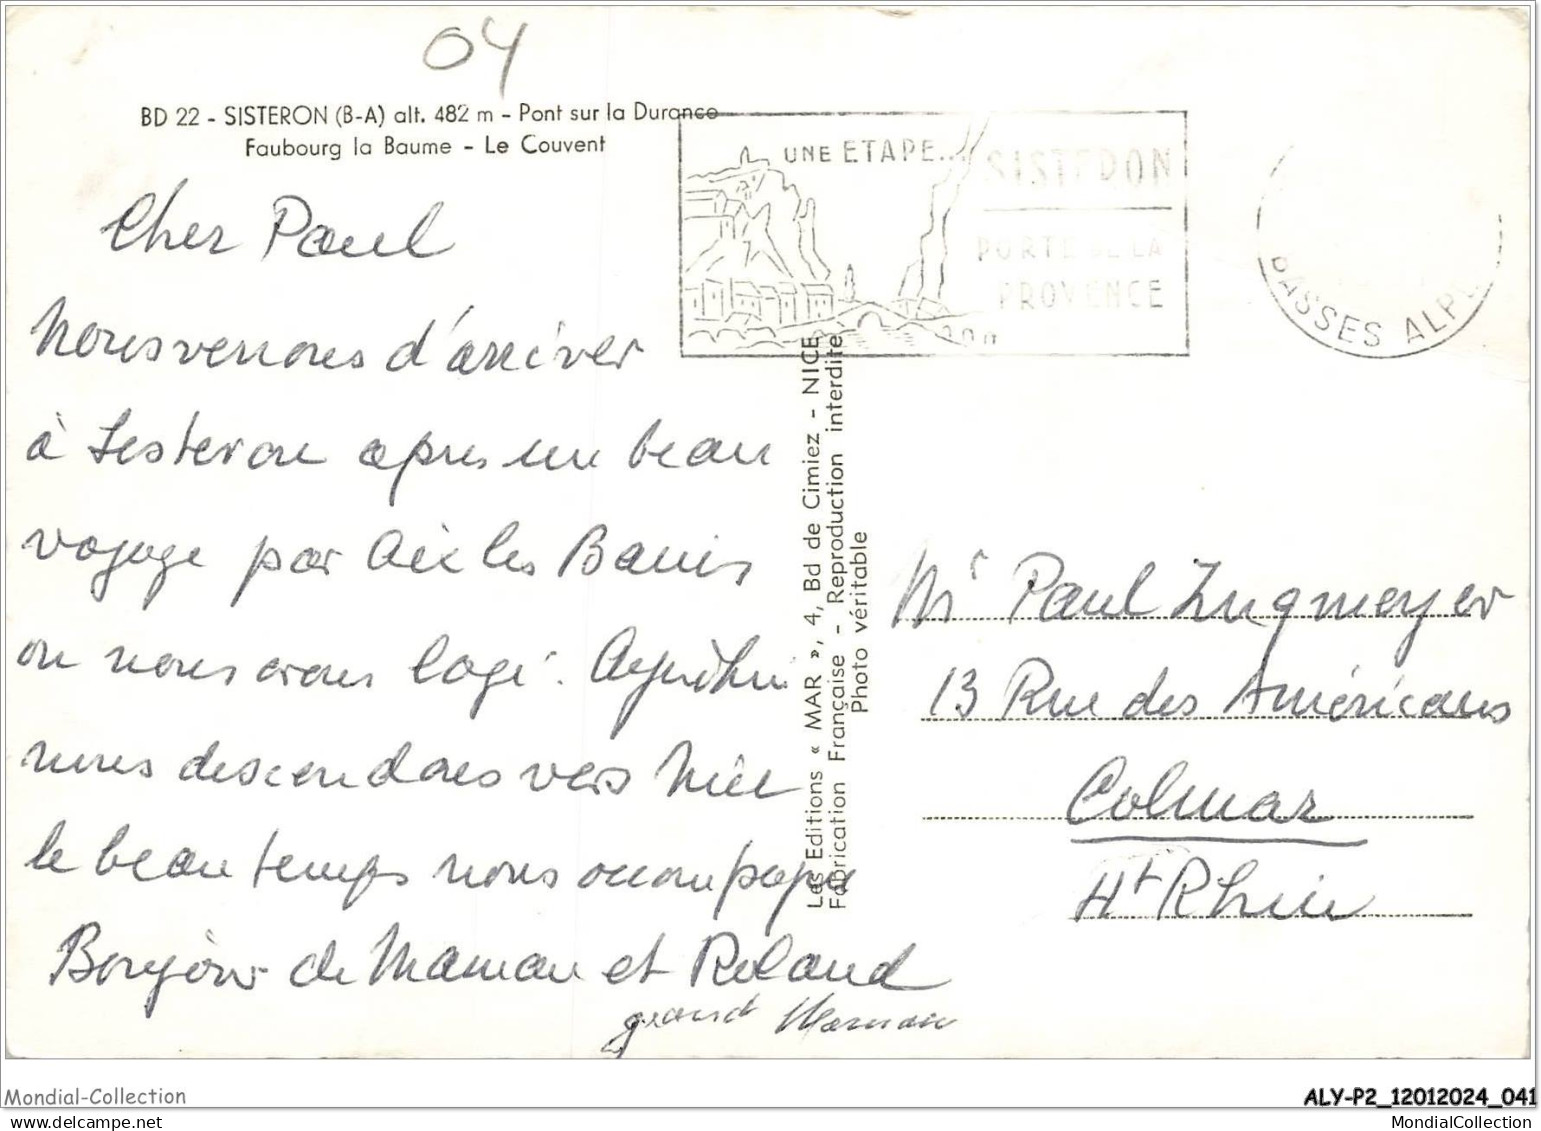 04
BD 22 - SISTERON (B-A) alt. 482 m - Pont sur la Durance
Faubourg la Baume - Le Couvent
UNE ETAPE...
SISTERON
PORTE DE LA
PROVENCE
BASSES ALPES
Cher Paul
Nous venons d'arriver
à Sisteron apres un beau
voyage par Aix les Bains
ou nous avons logé. Aujourd'hui
nous descendons vers Nice
le beau temps nous accompagne
Bonjour de Maman et Roland
grand Maman
Les Editions « MAR », 4, Bd de Cimiez - NICE
Fabrication Française - Reproduction interdite
Photo véritable
Mr Paul Zugmeyer
13 Rue des Américains
Colmar
Ht Rhin
Mondial-Collection
ALY-P2_12012024_041
delcampe.net
MondialCollection